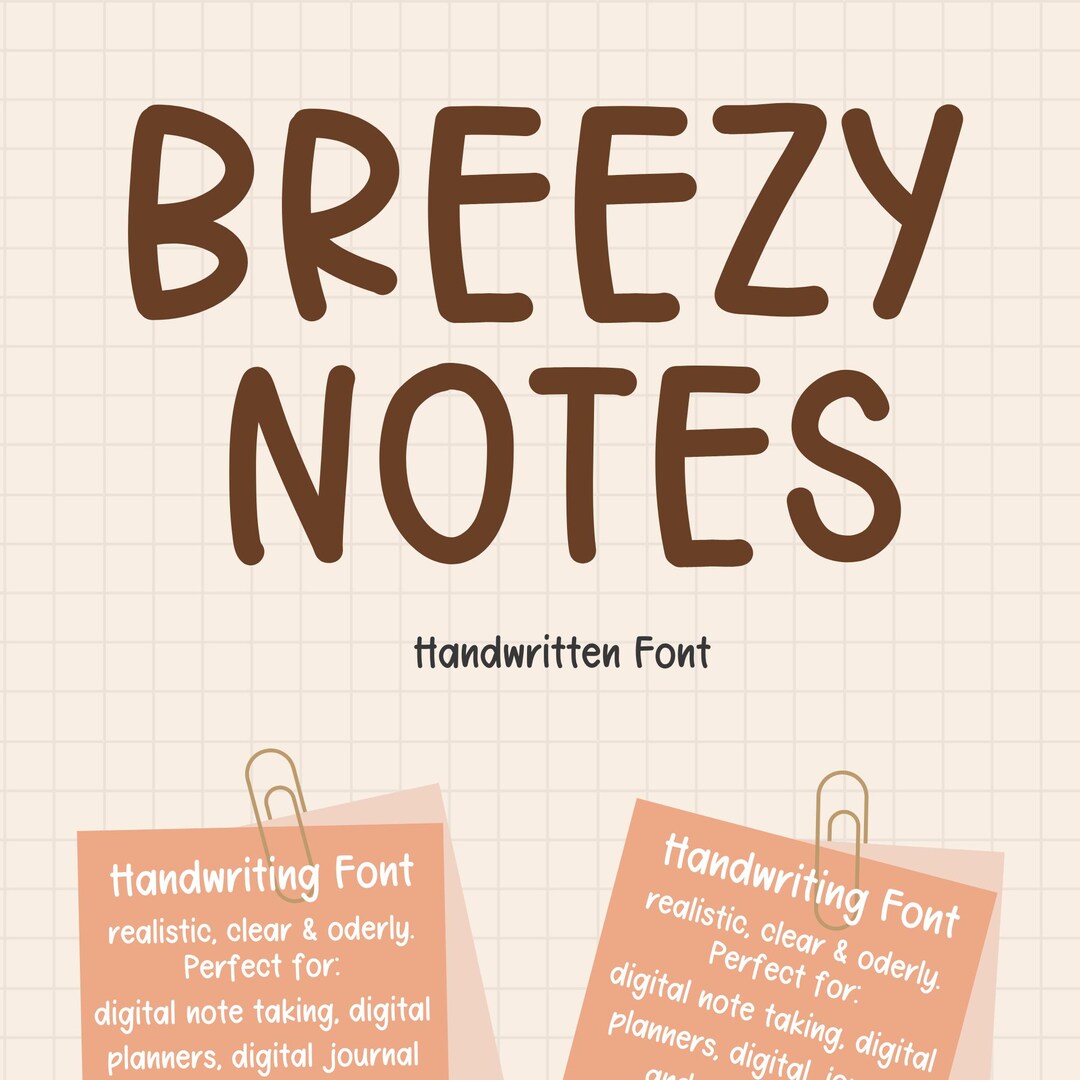 BREEZY
NOTES
Handwritten Font
Handwriting Font
realistic, clear & oderly.
Perfect for:
digital note taking, digital
planners, digital journal
Handwriting Font
realistic, clear & oderly.
Perfect for:
digital note taking, digital
planners, digital